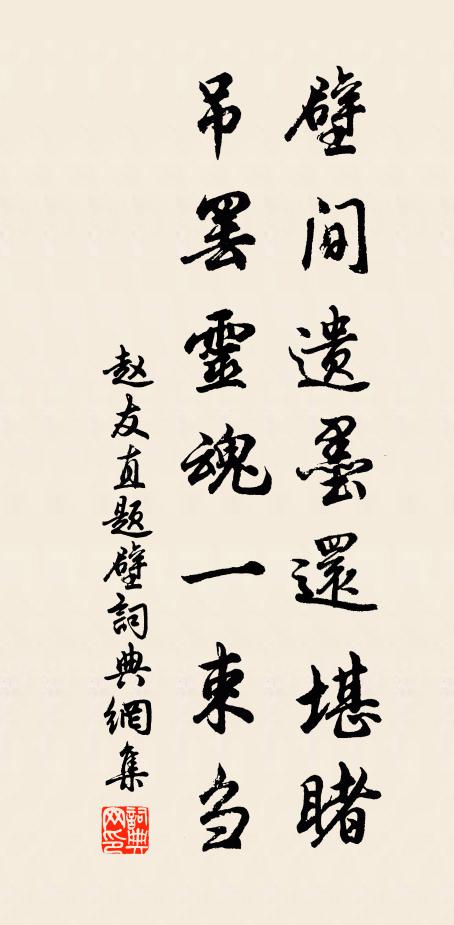 壁间遗墨還堪睹
吊罢靈魂一束刍
赵友直题壁詞典網集
詞典网印